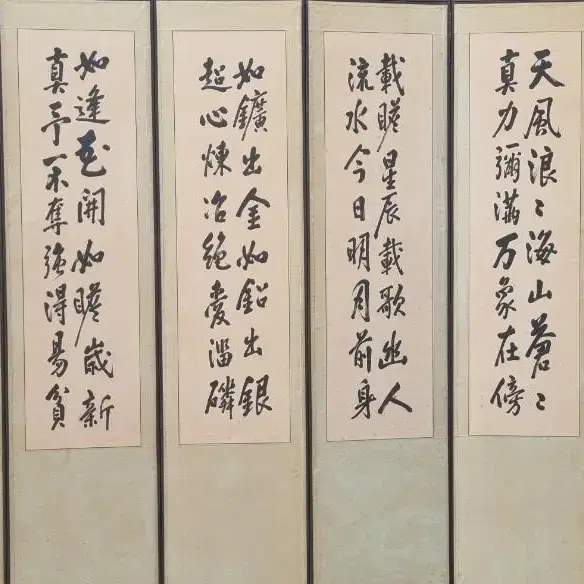 天風浪〻海山蒼〻
真力彌滿万象在傍
載瞻星辰載歌幽人
流水今日明月前身
如鑛出金如鉛出銀
超心煉冶絶愛淄磷
如逢花開如瞻歳新
真予不奪強得易貧